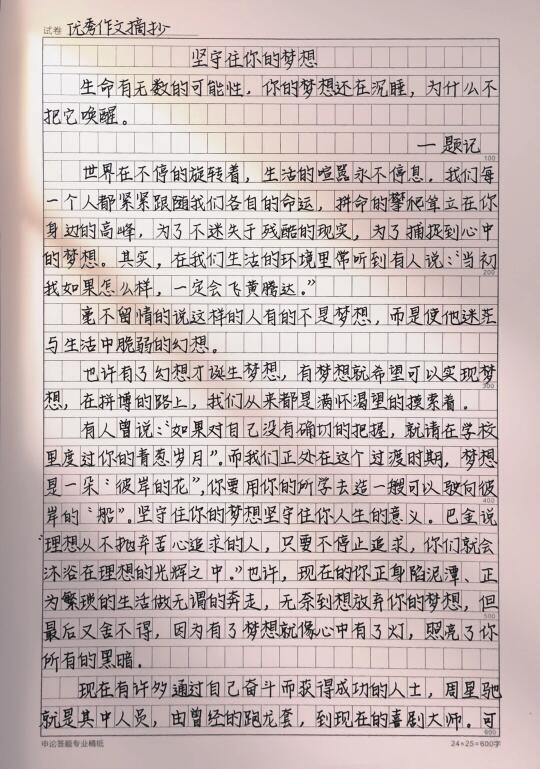 试卷 优秀作文摘抄
坚守住你的梦想
生命有无数的可能性，你的梦想还在沉睡，为什么不
把它唤醒。
—题记
100
世界在不停的旋转着，生活的喧嚣永不停息，我们每
一个人都紧紧跟随我们各自的命运，拼命的攀爬耸立在你
身边的高峰，为了不迷失于残酷的现实，为了捕捉到心中
的梦想。其实，在我们生活的环境里常听到有人说：“当初
200
我如果怎么样，一定会飞黄腾达。”
毫不留情的说这样的人有的不是梦想，而是使他迷茫
与生活中脆弱的幻想。
也许有了幻想才诞生梦想，有梦想就希望可以实现梦
300
想，在拼博的路上，我们从来都是满怀渴望的摸索着。
有人曾说：“如果对自己没有确切的把握，就请在学校
里度过你的青葱岁月”。而我们正处在这个过渡时期，梦想
是一朵“彼岸的花”，你要用你的所学去造一艘可以驶向彼
400
岸的“船”。坚守住你的梦想坚守住你人生的意义。巴金说
“理想从不抛弃苦心追求的人，只要不停止追求，你们就会
沐浴在理想的光辉之中。”也许，现在的你正身陷泥潭、正
为繁琐的生活做无谓的奔走，无奈到想放弃你的梦想，但
500
最后又舍不得，因为有了梦想就像心中有了灯，照亮了你
所有的黑暗。
现在有许多通过自己奋斗而获得成功的人士，周星驰
就是其中人员，由曾经的跑龙套，到现在的喜剧大师。可
600
申论答题专业稿纸 24×25=600字